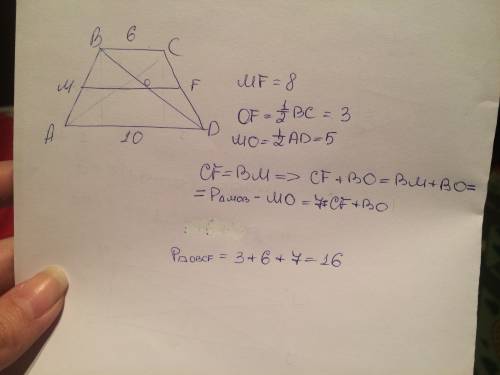 B 6 C
M O F
A 10 D
MF = 8
OF = ½BC = 3
MO = ½AD = 5
CF = BM => CF + BO = BM + BO =
= P△MOB - MO = 7 = CF + BO
P△OBCF = 3 + 6 + 7 = 16